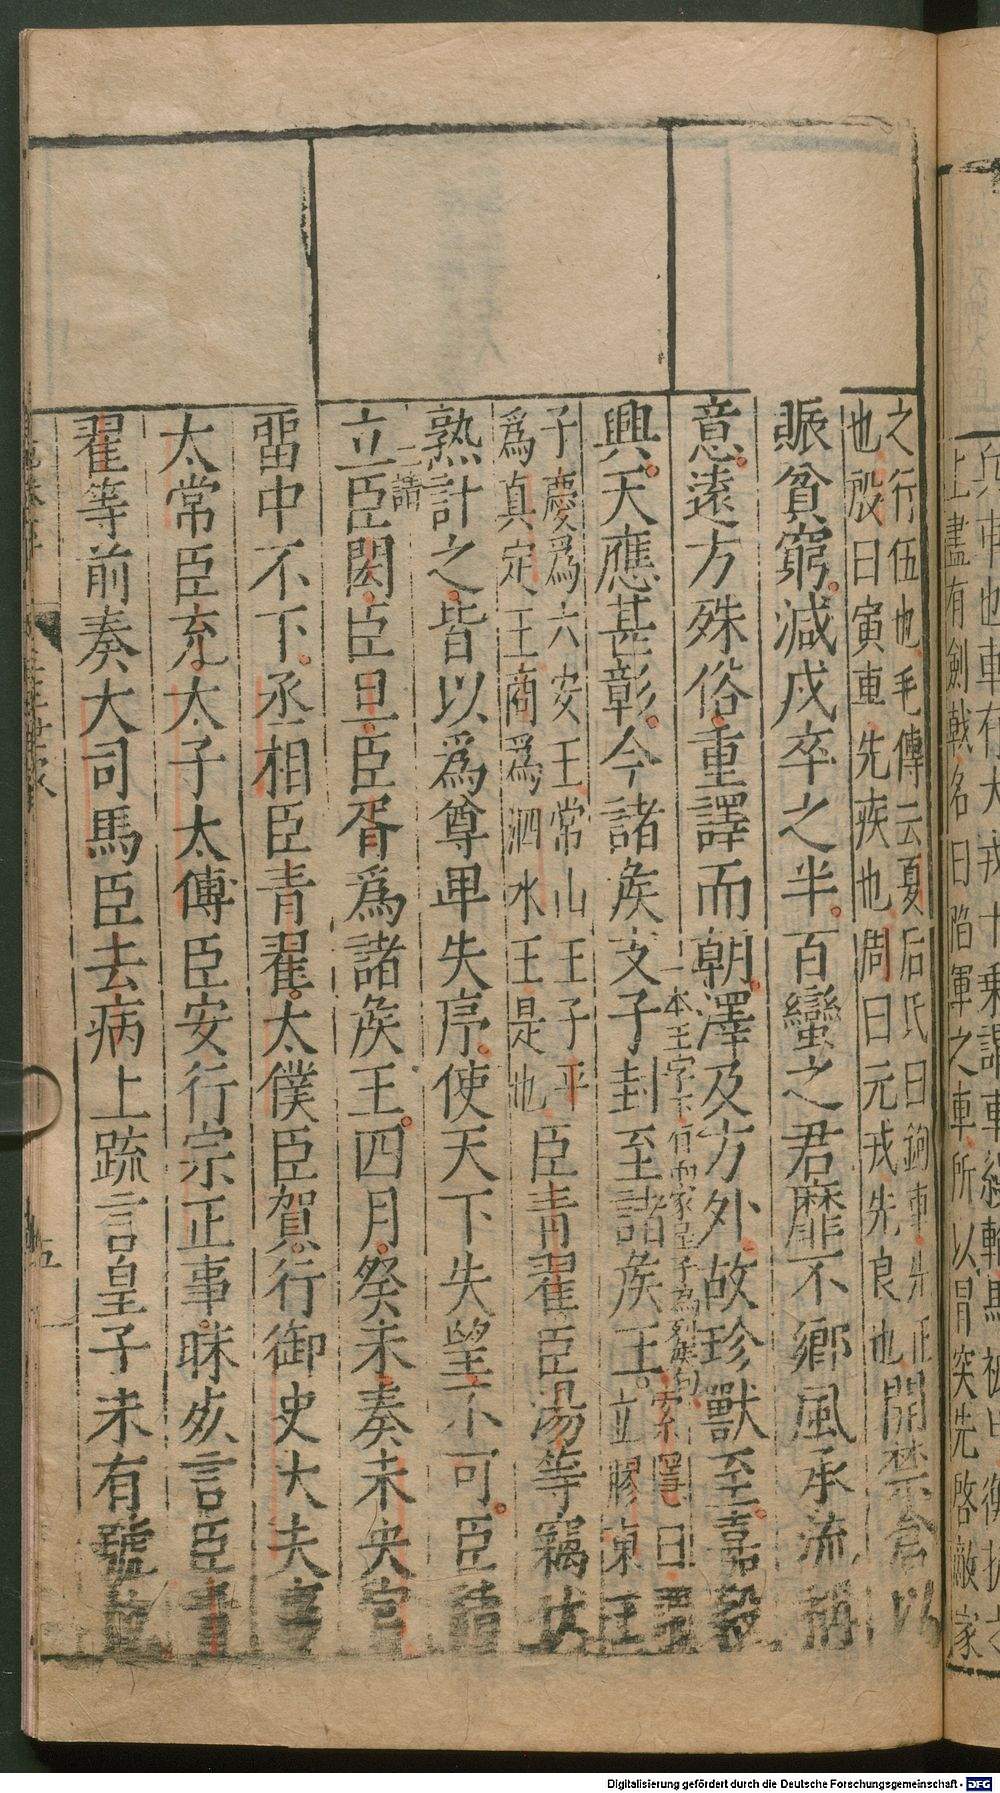 之行伍也毛傳云夏后氏曰鉤車先正
也殷曰寅車先疾也周曰元戎先良也
開禁倉以
賑貧窮減戍卒之半百蠻之君靡不鄉風承流稱
意遠方殊俗重譯而朝澤及方外故珍獸至嘉穀
一本王字下有而家皇子為列侯句
興天應甚彰今諸矦支子封至諸矦王
索隱曰
立膠東王
子慶爲六安王常山王子平
爲真定王商爲泗水王是也
臣青翟臣湯等竊伏
熟計之皆以爲尊卑失序使天下失望不可臣請
三請
立臣閎臣旦臣胥爲諸矦王四月癸未奏未央宮
畱中不下丞相臣青翟太僕臣賀行御史大夫事
太常臣充太子太傅臣安行宗正事昧死言臣青
翟等前奏大司馬臣去病上疏言皇子未有號位
三王世家
五
上盡有劍戟名曰陷軍之車所以冒突先啓敵家
Digitalisierung gefördert durch die Deutsche Forschungsgemeinschaft - DFG